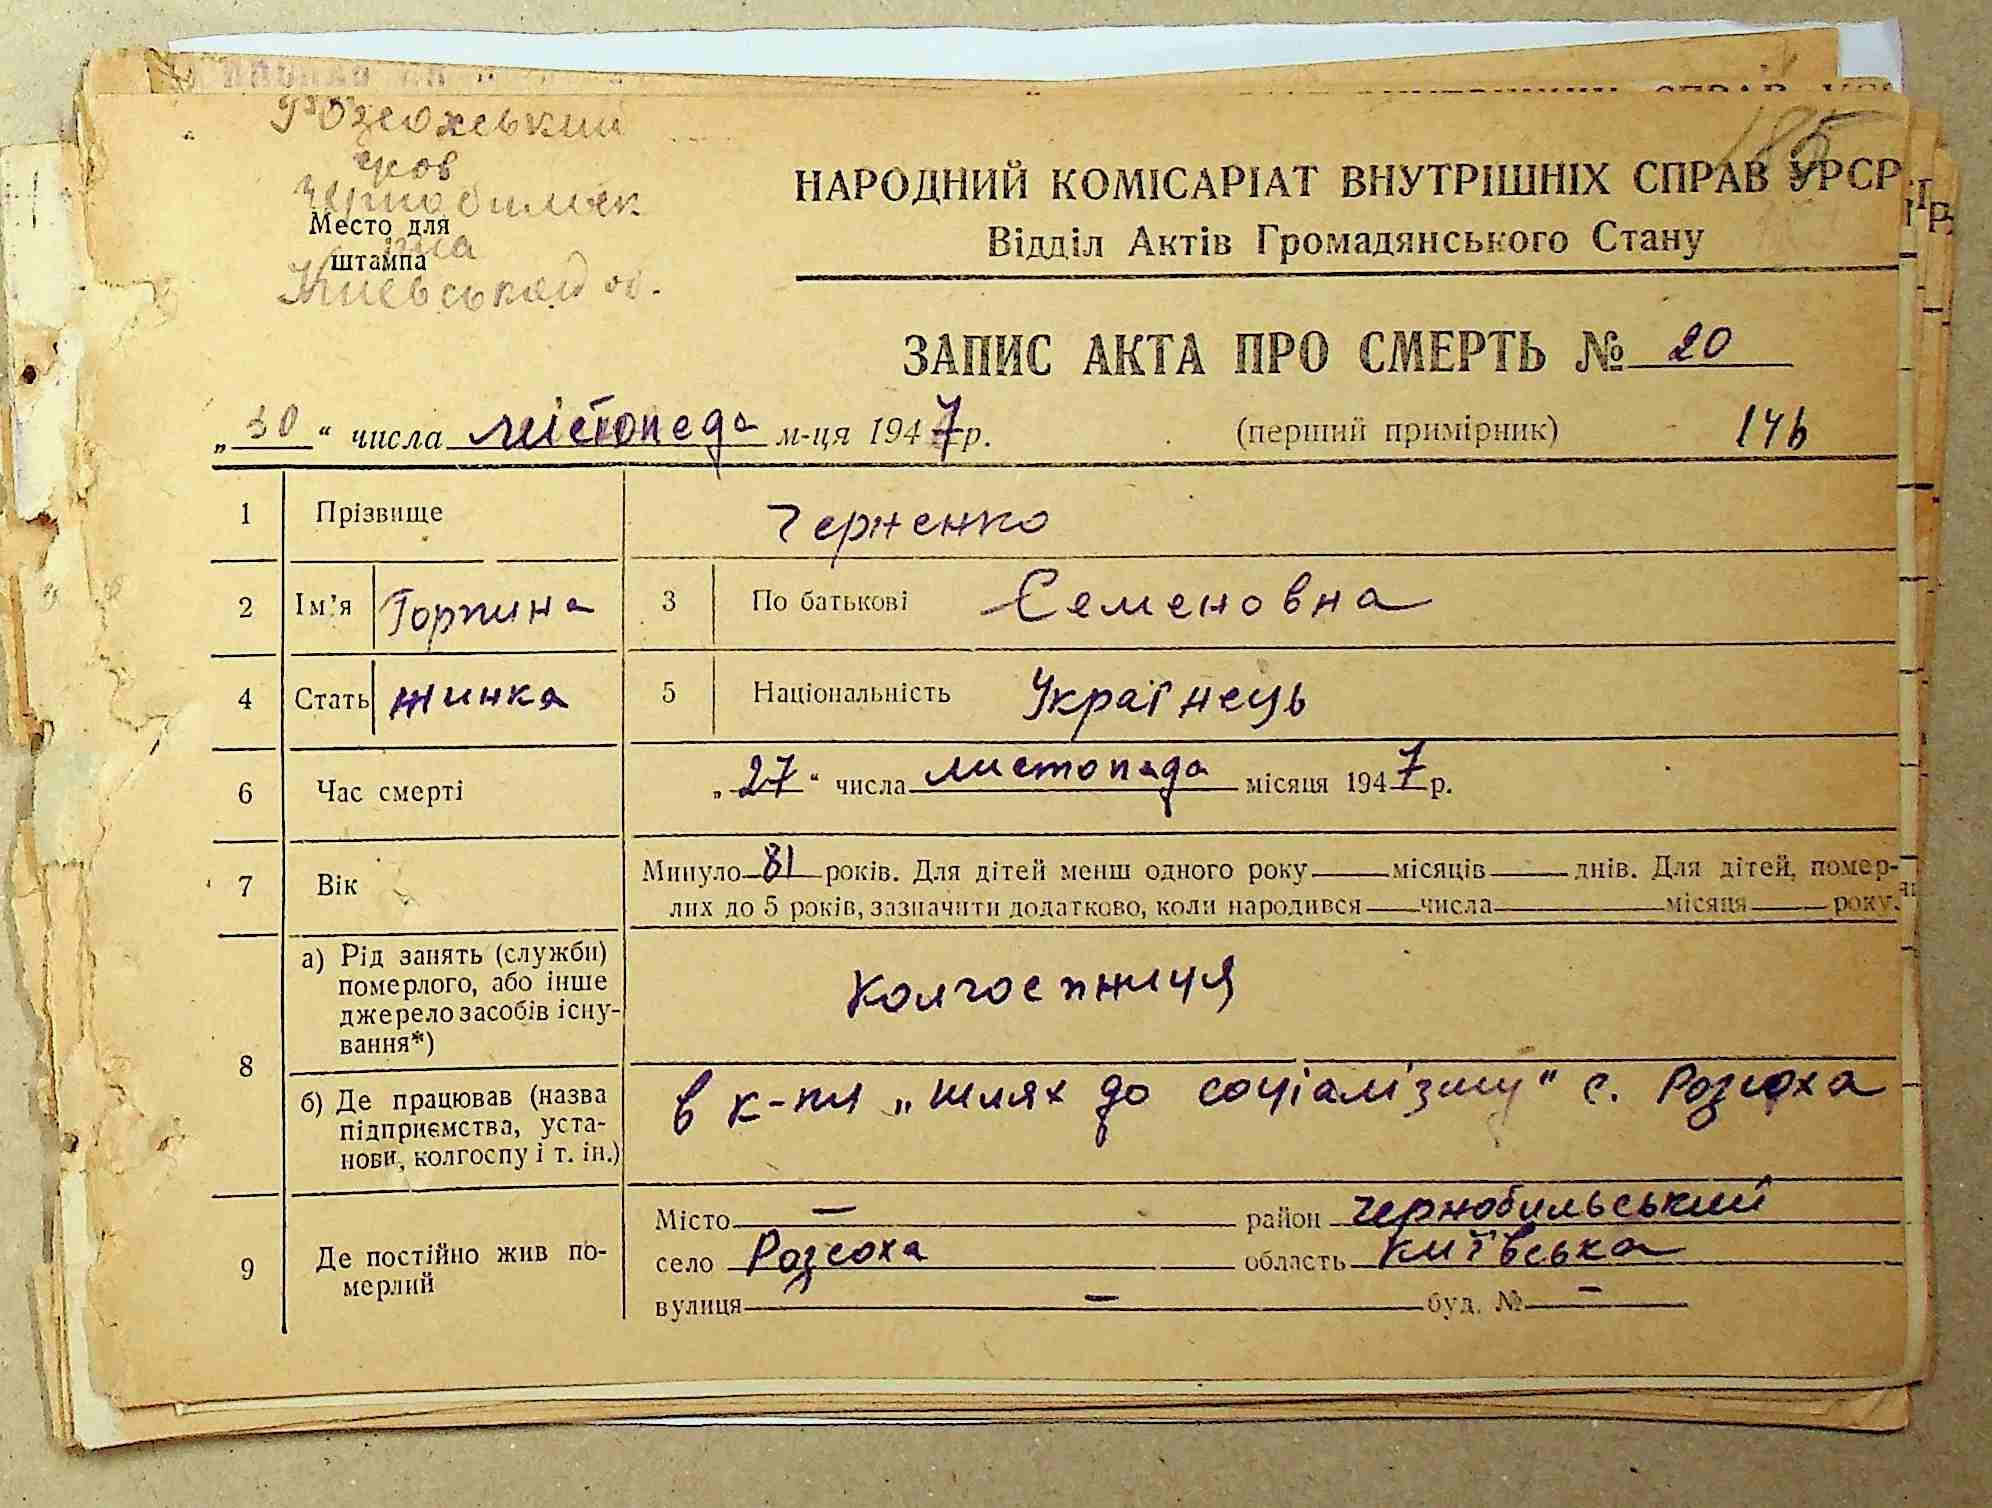 Розсохський
Чорнобилськ
Место для
штампа
Киевськой об.
185
НАРОДНИЙ КОМІСАРІАТ ВНУТРІШНІХ СПРАВ УРСР
Відділ Актів Громадянського Стану
ЗАПИС АКТА ПРО СМЕРТЬ № 20
„30“ числа листопада м-ця 1947 р. (перший примірник) 146
1 Прізвище Черненко
2 Ім'я Горпина 3 По батькові Семеновна
4 Стать жинка 5 Національність Українець
6 Час смерті „27“ числа листопада місяця 1947 р.
7 Вік Минуло 81 років. Для дітей менш одного року місяців днів. Для дітей, помер-
лих до 5 років, зазначити додатково, коли народився числа місяця року.
8 а) Рід занять (служби)
померлого, або інше
джерело засобів існу-
вання*)
Колгоспниця
б) Де працював (назва
підприємства, уста-
нови, колгоспу і т. ін.)
в к-пі „шлях до соціалізму" с. Розсоха
9 Де постійно жив по-
мерлий
Місто — район чернобильський
село Розсоха область київська
вулиця — буд. № —